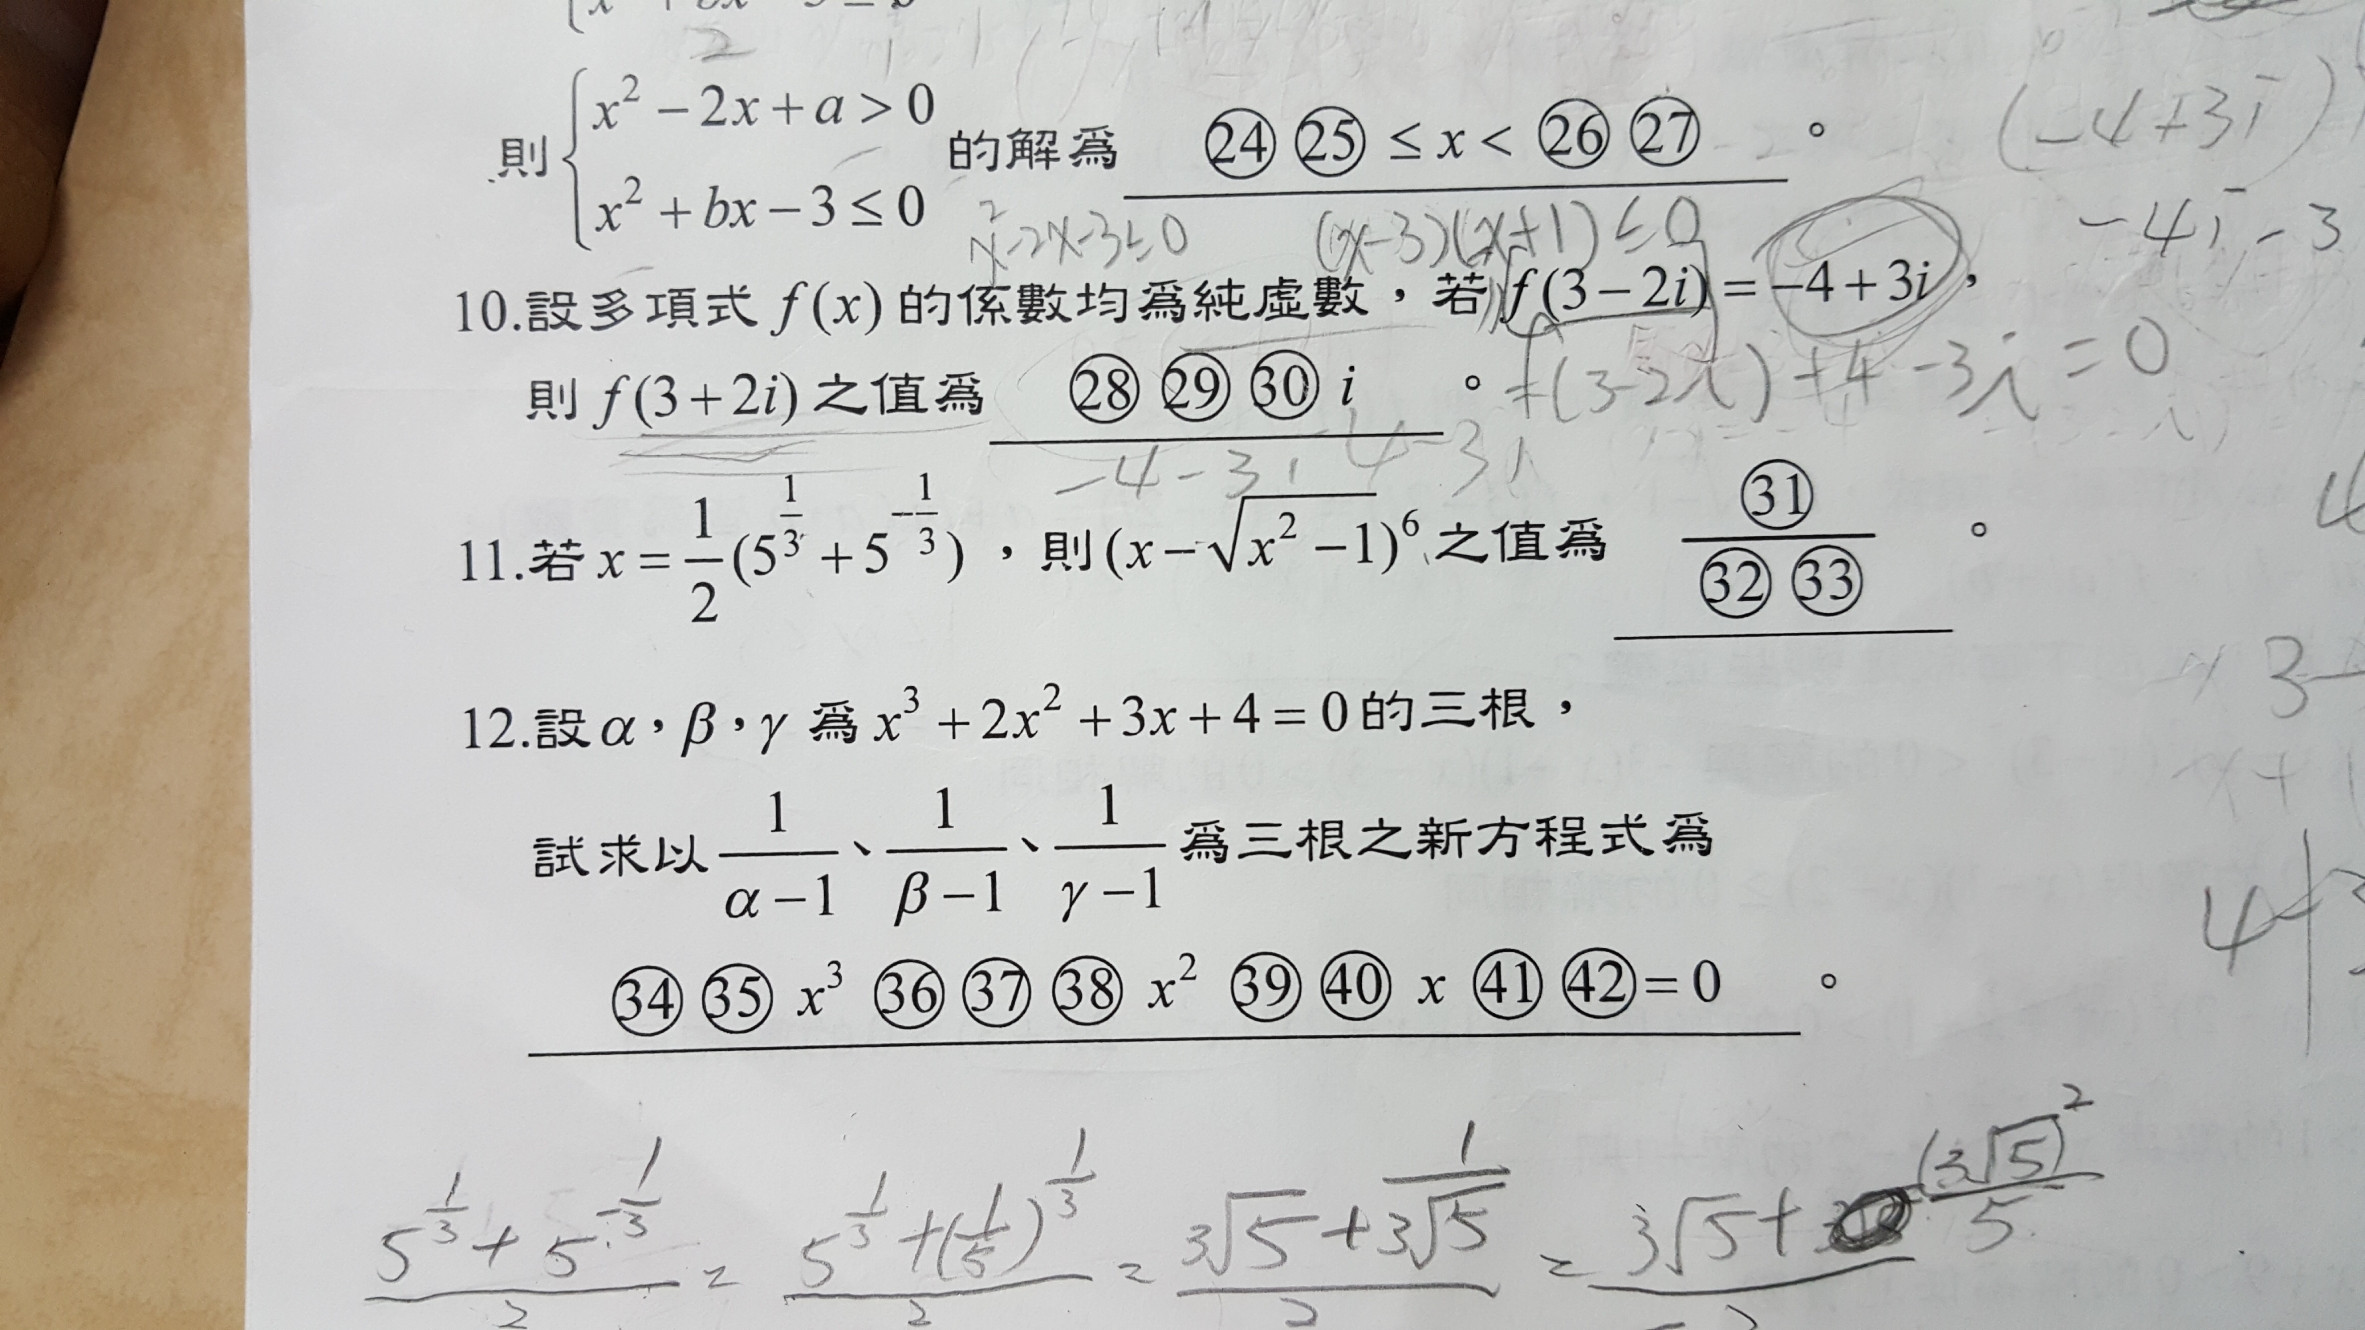 則 { x² − 2x + a > 0
x² + bx − 3 ≤ 0 的解為 ㉔ ㉕ ≤ x < ㉖ ㉗ 。
x²-2x-3≤0 (x-3)(x+1)≤0
(-4+3i)
-4i-3
10.設多項式 f(x) 的係數均為純虛數，若 f(3−2i) = −4+3i，
則 f(3+2i) 之值為 ㉘ ㉙ ㉚ i 。
f(3-2i)+4-3i=0
-4-3i 4-3i
11.若 x = 1/2 (5^(1/3) + 5^(−1/3))，則 (x − √(x² − 1))⁶ 之值為 ㉛/㉜㉝ 。
12.設 α，β，γ 為 x³ + 2x² + 3x + 4 = 0 的三根，
試求以 1/(α−1)、1/(β−1)、1/(γ−1) 為三根之新方程式為
㉞ ㉟ x³ ㊱ ㊲ ㊳ x² ㊴ ㊵ x ㊶ ㊷ = 0 。
(5^(1/3) + 5^(-1/3))/2 = (5^(1/3) + (1/5)^(1/3))/2 = (³√5 + 1/³√5)/2 = (³√5 + (³√5)²/5)/2